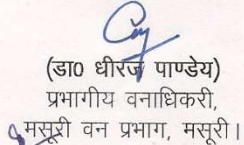 (डा0 धीरज पाण्डेय)
प्रभागीय वनाधिकरी,
मसूरी वन प्रभाग, मसूरी।